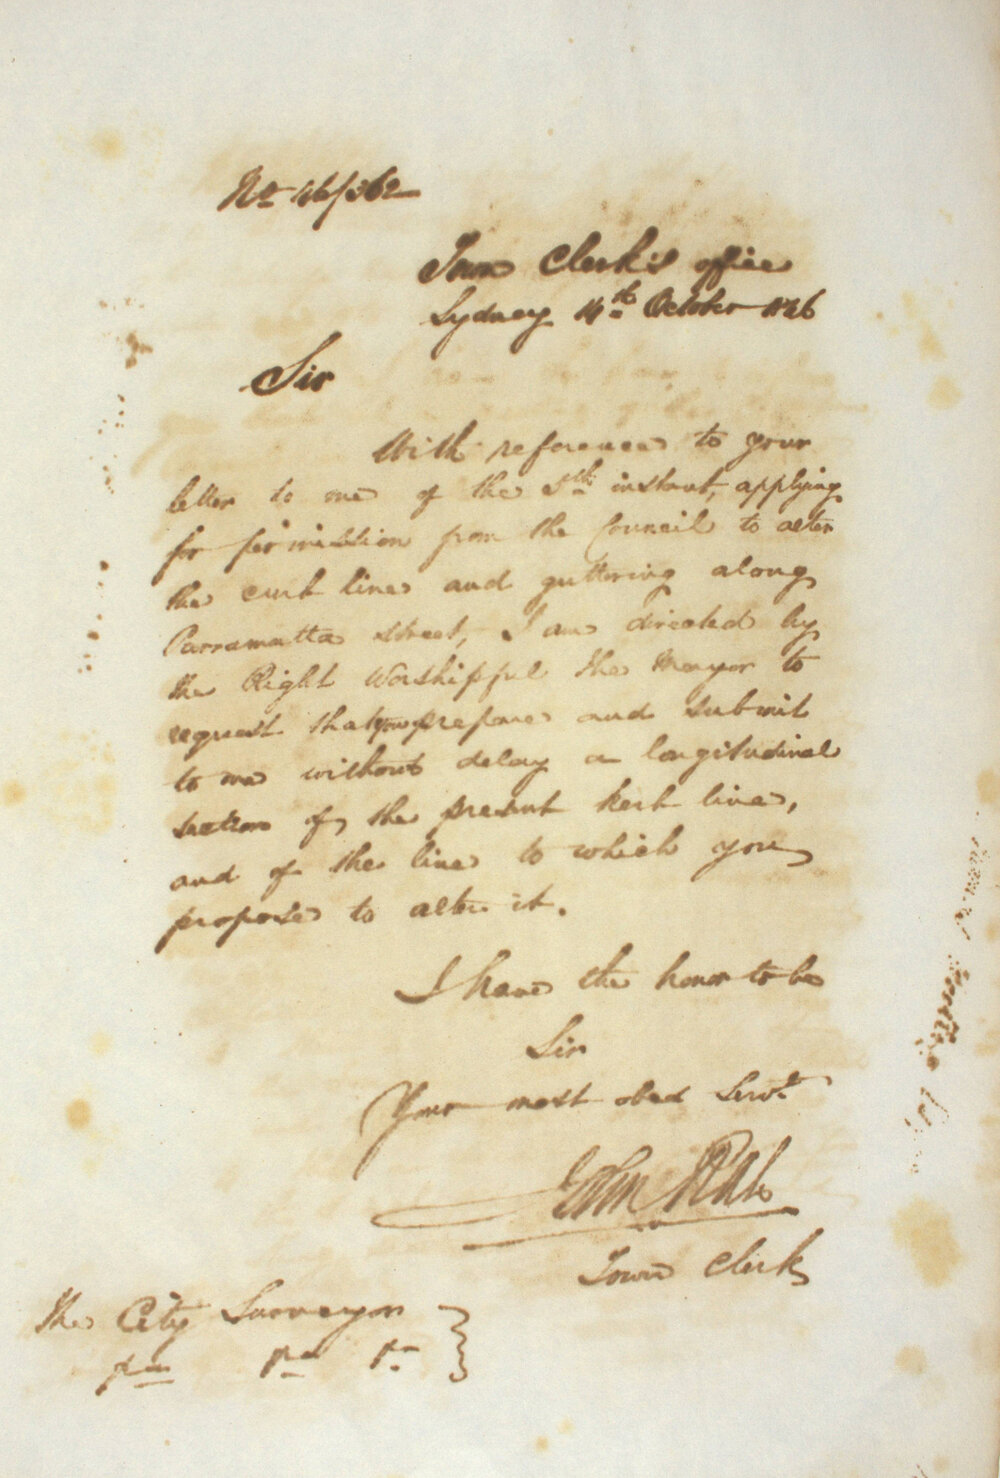 No 46/362
Town Clerk's office
Sydney 14th October 1846
Sir
With reference to your
letter to me of the 5th instant, applying
for permission from the Council to alter
the curb line and guttering along
Parramatta Street, I am directed by
the Right Worshipful the Mayor to
request that you prepare and submit
to me without delay a longitudinal
section of the present kerb line,
and of the line to which you
propose to alter it.
I have the honor to be
Sir
Your most obed Servt
John
Town Clerk
The City Surveyor